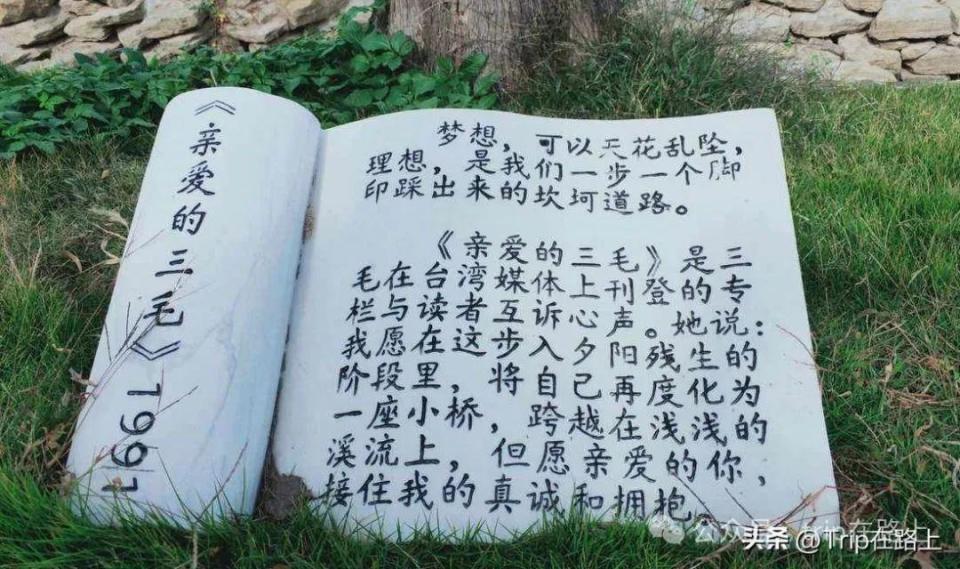 《亲爱的三毛》1991
梦想，可以天花乱坠，
理想，是我们一步一个脚
印踩出来的坎坷道路。
《亲爱的三毛》是三
毛在台湾媒体上刊登的专
栏与读者互诉心声。她说：
我愿在这步入夕阳残生的
阶段里，将自己再度化为
一座小桥，跨越在浅浅的
溪流上，但愿亲爱的你，
接住我的真诚和拥抱。
公众号
头条 @Trip在路上